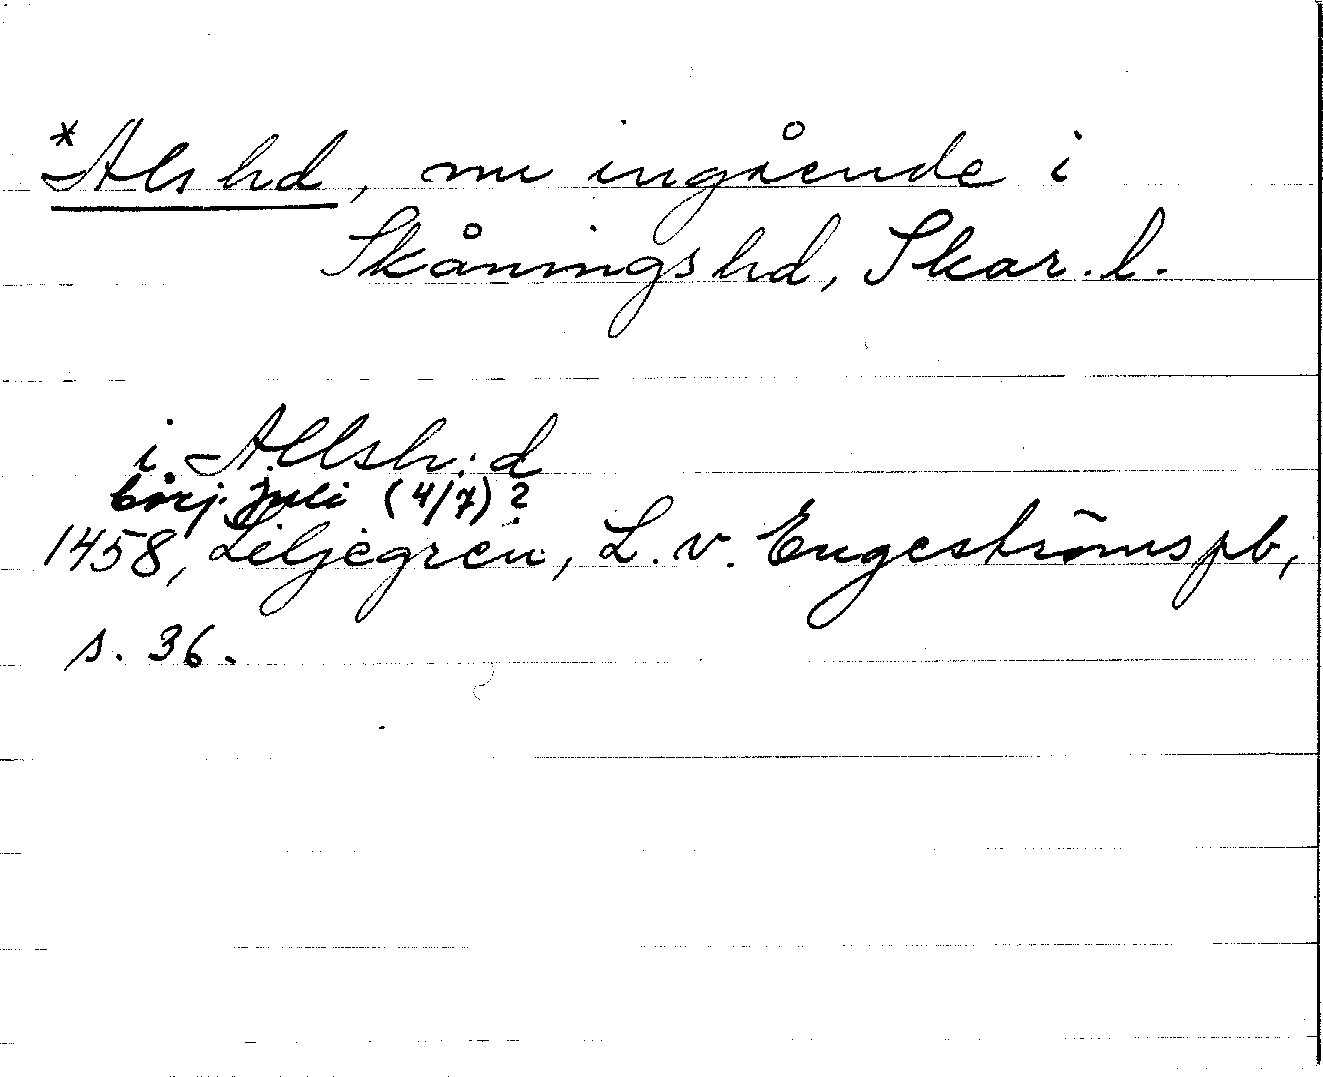 *Als hd, nu ingående i
Skånings hd, Skar. l.
i Allsh:d
börj. Juli (4/7)?
1458, Liljegren, L. v. Engeströms pb,
s. 36.